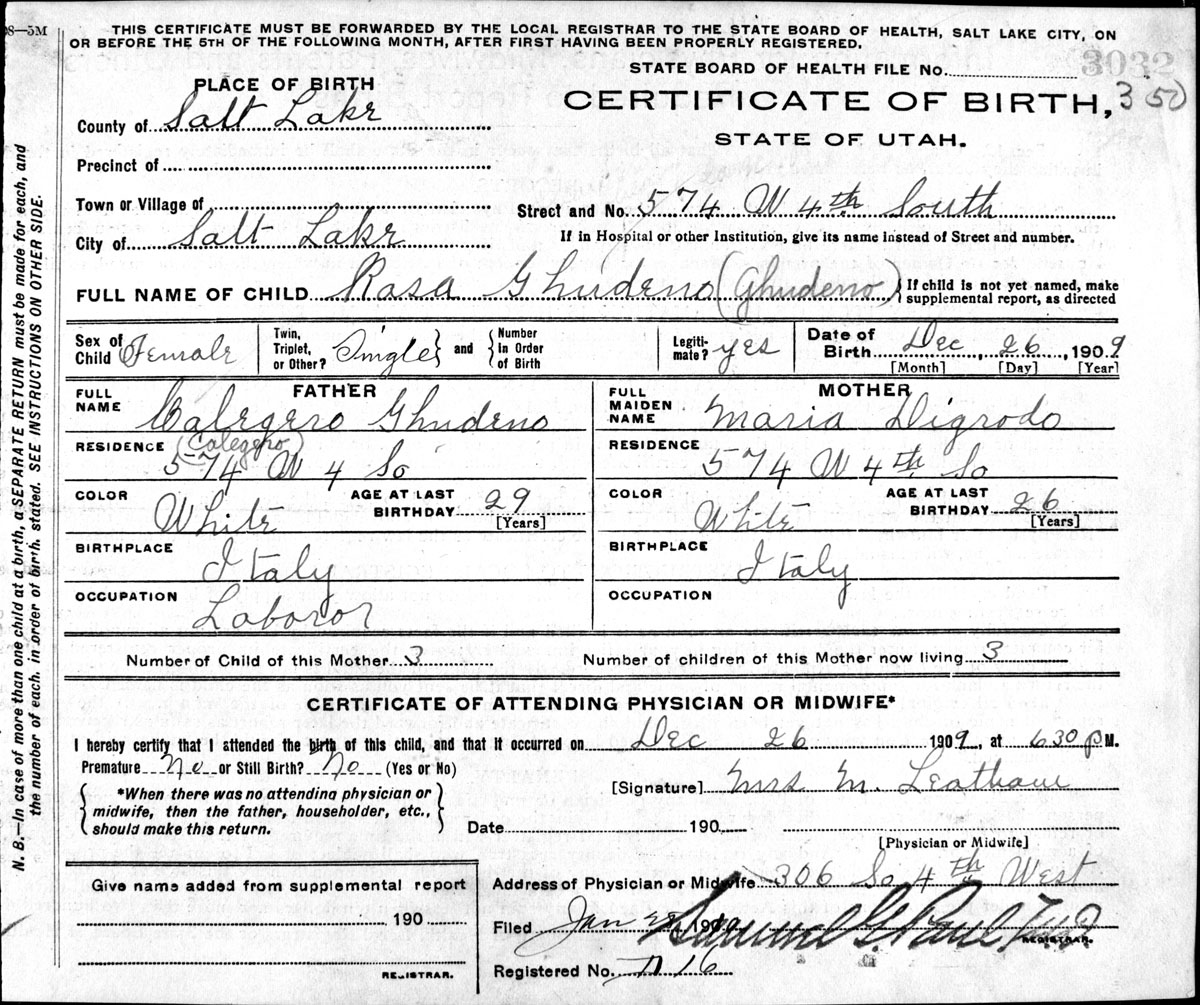 THIS CERTIFICATE MUST BE FORWARDED BY THE LOCAL REGISTRAR TO THE STATE BOARD OF HEALTH, SALT LAKE CITY, ON
OR BEFORE THE 5TH OF THE FOLLOWING MONTH, AFTER FIRST HAVING BEEN PROPERLY REGISTERED.
STATE BOARD OF HEALTH FILE No. 3032
PLACE OF BIRTH
CERTIFICATE OF BIRTH, 350
STATE OF UTAH.
County of Salt Lake
Precinct of
Town or Village of
Street and No. 574 W 4th South
City of Salt Lake
If in Hospital or other Institution, give its name instead of Street and number.
FULL NAME OF CHILD Rasa Ghudeno (Ghudeno) If child is not yet named, make
supplemental report, as directed
Sex of Child Female
Twin, Triplet, or Other? Single and Number in Order of Birth
Legitimate? yes
Date of Birth Dec 26, 1909
[Month] [Day] [Year]
FATHER
FULL NAME Calegero Ghudeno
(Calegero)
RESIDENCE 574 W 4 So
COLOR White
AGE AT LAST BIRTHDAY 29
[Years]
BIRTHPLACE Italy
OCCUPATION Laboror
MOTHER
FULL MAIDEN NAME Maria Digrodo
RESIDENCE 574 W 4th So
COLOR White
AGE AT LAST BIRTHDAY 26
[Years]
BIRTHPLACE Italy
OCCUPATION
Number of Child of this Mother 3
Number of children of this Mother now living 3
CERTIFICATE OF ATTENDING PHYSICIAN OR MIDWIFE*
I hereby certify that I attended the birth of this child, and that it occurred on Dec 26 1909, at 630 P M.
Premature No or Still Birth? No (Yes or No)
[Signature] Mrs M. Leatham
*When there was no attending physician or
midwife, then the father, householder, etc.,
should make this return.
Date 190
[Physician or Midwife]
Give name added from supplemental report
190
REGISTRAR.
Address of Physician or Midwife 306 So 4th West
Filed Jan Samuel G. Paul
REGISTRAR.
Registered No. 16
N. B.—In case of more than one child at a birth, a SEPARATE RETURN must be made for each, and
the number of each, in order of birth, stated. SEE INSTRUCTIONS ON OTHER SIDE.